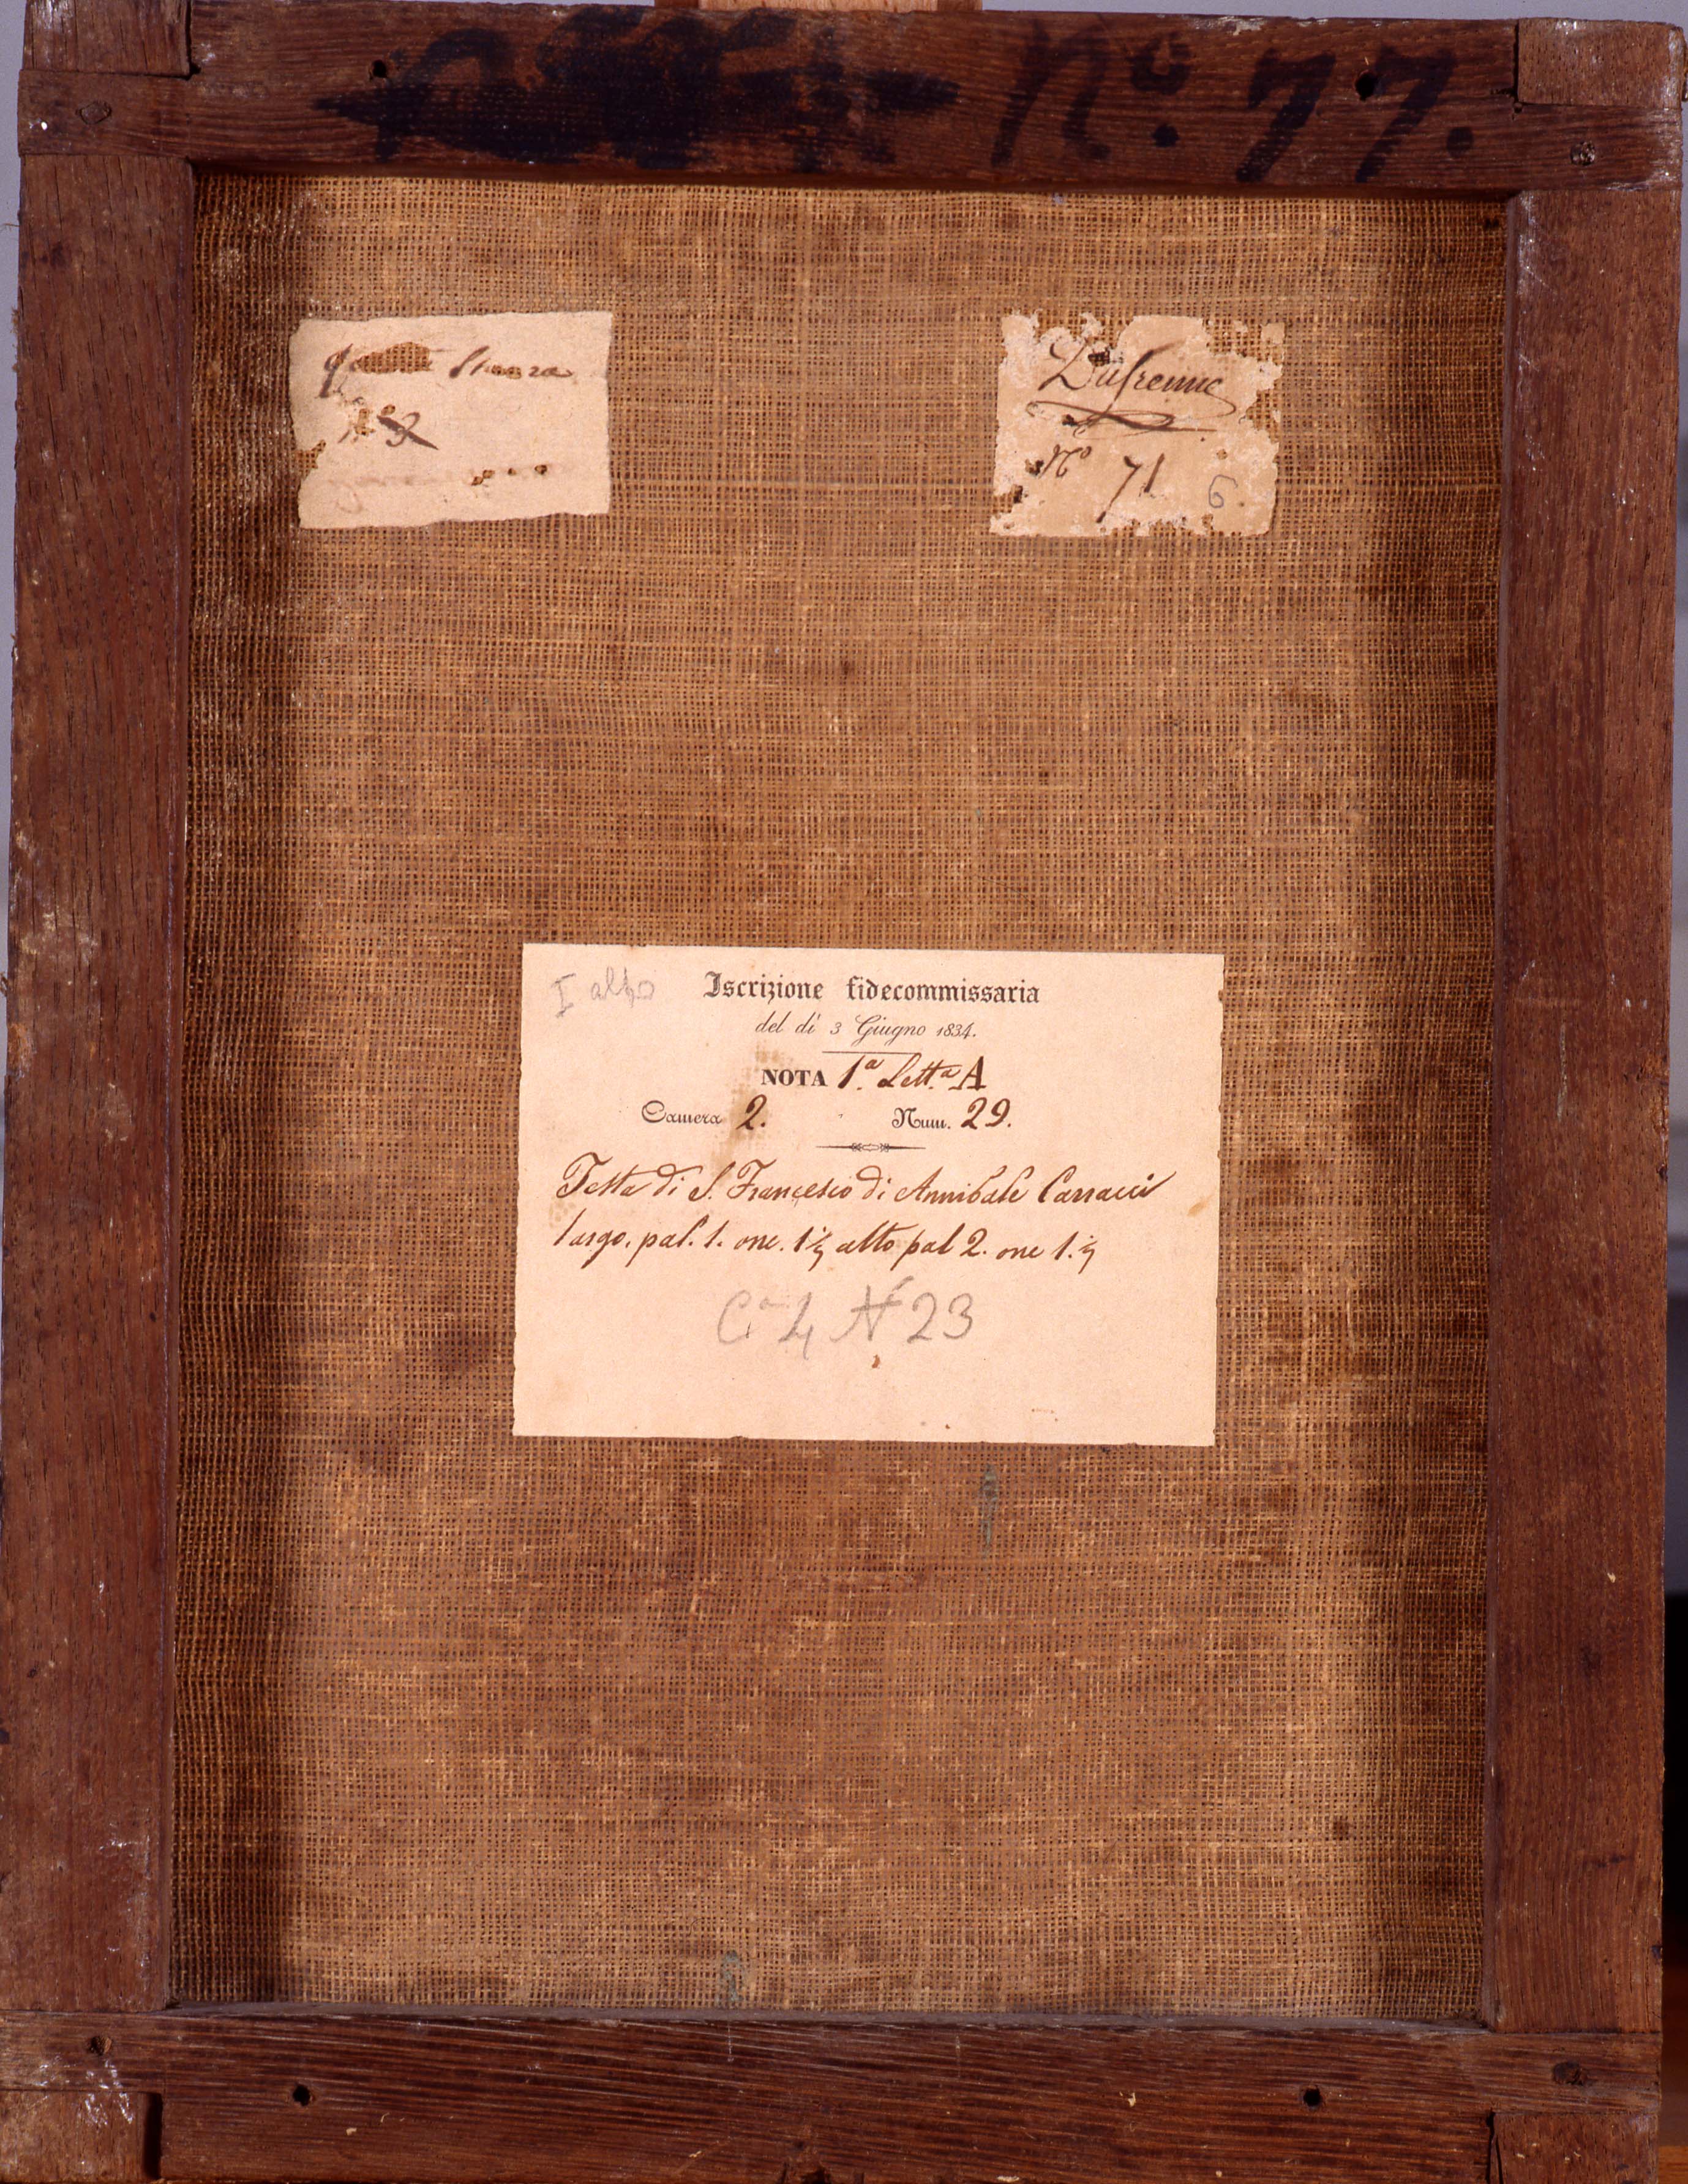 Nº. 77.
Stanza
Nº 3
Dufrenne
Nº 71 6.
I alto
Iscrizione fidecommissaria
del di 3 Giugno 1834.
NOTA 1.ª Lett.ª A
Camera 2. Num. 29.
Testa di S. Francesco di Annibale Carracci
largo. pal. 1. onc. 1½ alto pal 2. onc 1.½
Cª 4 N 23